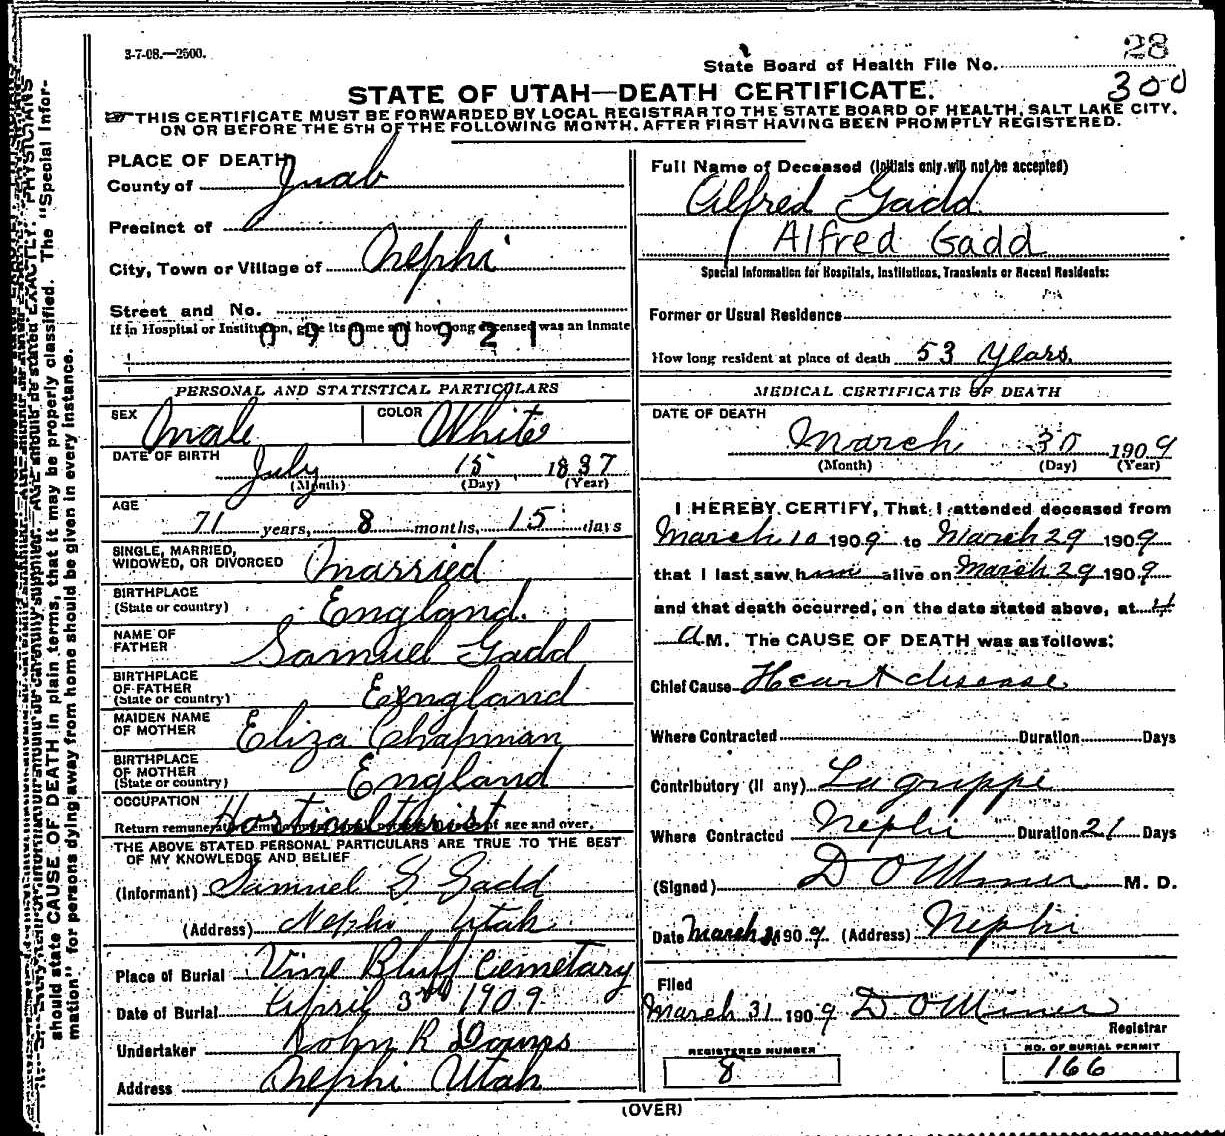 3-7-08.—2500.
28
State Board of Health File No.
300
STATE OF UTAH—DEATH CERTIFICATE.
THIS CERTIFICATE MUST BE FORWARDED BY LOCAL REGISTRAR TO THE STATE BOARD OF HEALTH, SALT LAKE CITY,
ON OR BEFORE THE 5TH OF THE FOLLOWING MONTH, AFTER FIRST HAVING BEEN PROMPTLY REGISTERED.
PLACE OF DEATH
County of Juab
Precinct of
City, Town or Village of Nephi
Street and No.
If in Hospital or Institution, give its name and how long deceased was an inmate
0900921
PERSONAL AND STATISTICAL PARTICULARS
SEX Male COLOR White
DATE OF BIRTH July 15 1837
(Month) (Day) (Year)
AGE 71 years, 8 months, 15 days
SINGLE, MARRIED,
WIDOWED, OR DIVORCED Married
BIRTHPLACE
(State or country) England.
NAME OF
FATHER Samuel Gadd
BIRTHPLACE
OF FATHER
(State or country) England
MAIDEN NAME
OF MOTHER Eliza Chapman
BIRTHPLACE
OF MOTHER
(State or country) England
OCCUPATION Horticulturist
Return of age and over.
THE ABOVE STATED PERSONAL PARTICULARS ARE TRUE TO THE BEST
OF MY KNOWLEDGE AND BELIEF
(Informant) Samuel G Gadd
(Address) Nephi Utah
Place of Burial Vine Bluff Cemetary
Date of Burial April 3rd 1909
Undertaker John R
Address Nephi Utah
Full Name of Deceased (Initials only will not be accepted)
Alfred Gadd
Alfred Gadd
Special Information for Hospitals, Institutions, Transients or Recent Residents:
Former or Usual Residence
How long resident at place of death 53 Years.
MEDICAL CERTIFICATE OF DEATH
DATE OF DEATH
March 30 1909
(Month) (Day) (Year)
I HEREBY CERTIFY, That I attended deceased from
March 10 1909 to March 29 1909
that I last saw him alive on March 29 1909
and that death occurred, on the date stated above, at 4
A M. The CAUSE OF DEATH was as follows:
Chief Cause Heart disease
Where Contracted Duration Days
Contributory (if any) La grippe
Where Contracted Nephi Duration 21 Days
(Signed) D O Miner M. D.
Date March 31 1909 (Address) Nephi
Filed
March 31 1909 D O Miner
Registrar
REGISTERED NUMBER
8
NO. OF BURIAL PERMIT
166
(OVER)
should state CAUSE OF DEATH in plain terms, that it may be properly classified. The "Special Infor-
mation" for persons dying away from home should be given in every instance.